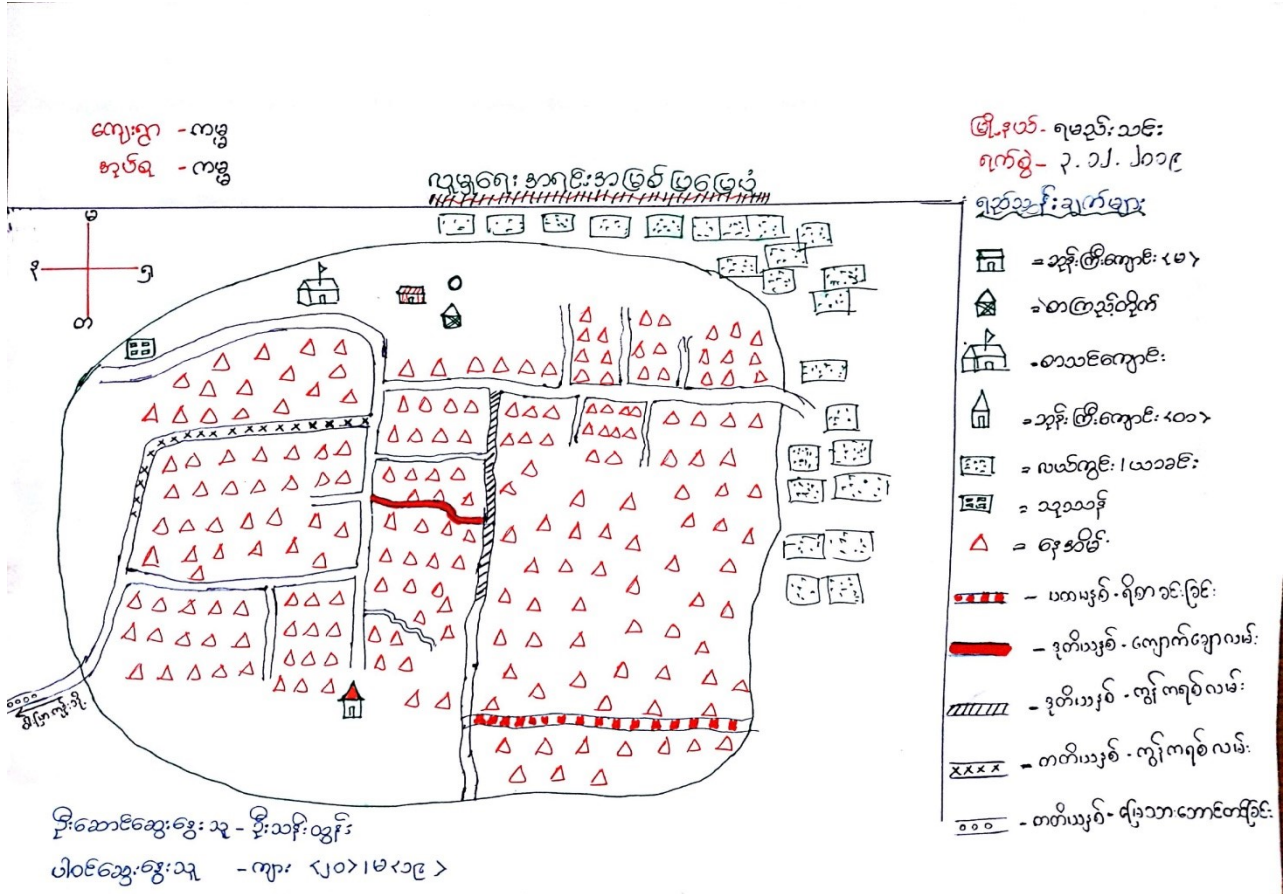 ကျေးရွာ - ကမ္ဘ
အုပ်စု - ကမ္ဘ
မြို့နယ် - ရမည်းသင်း
ရက်စွဲ - ၃.၁၂.၂၀၁၉
လူမှုရေးအရင်းအမြစ်ပြမြေပုံ
ရည်ညွှန်းချက်များ
မ
န
တ
= ဘုန်းကြီးကျောင်း <မ>
= စာကြည့်တိုက်
- စာသင်ကျောင်း
= ဘုန်းကြီးကျောင်း
= လယ်ကွင်း / ယာခင်း
= သုဿာန်
= နေအိမ်
- ပထမနှစ် - ရိစာခင်းခြင်း
- ဒုတိယနှစ် - ကျောက်ချောလမ်း
- ဒုတိယနှစ် - ကွန်ကရစ်လမ်း
- တတိယနှစ် - ကွန်ကရစ်လမ်း
- တတိယနှစ် - မြေသားဘောင်တာခြင်း
ဦးဆောင်ဆွေးနွေးသူ - ဦးသန်းထွန်း
ပါဝင်ဆွေးနွေးသူ - ကျား <၂၀> / မ <၁၉>